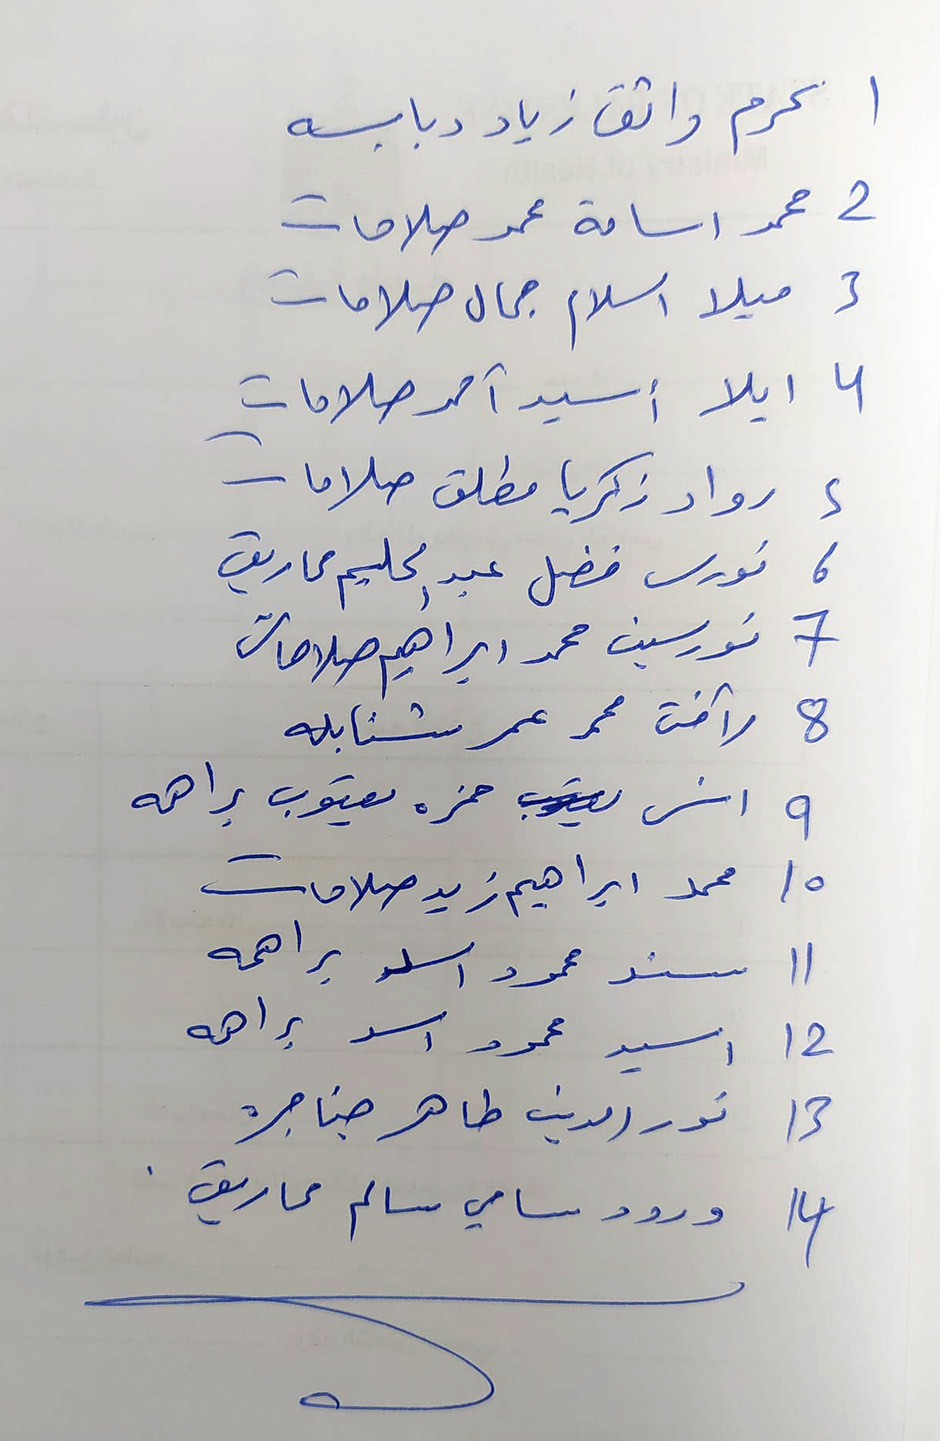 1 محرم واثق زياد دبابسه
2 محمد اسامة محمد صلامات
3 ميلا اسلام جمال صلامات
4 ايلا أسيد أحمد صلامات
5 رواد زكريا مطلق صلامات
6 نورس فضل عبد الحليم محاريق
7 نورسين محمد ابراهيم صلامات
8 رأفت محمد عمر شنابله
9 انس حمزه يعقوب براهمه
10 محمد ابراهيم زيد صلامات
11 سند محمود اسد براهمه
12 اسيد محمود اسد براهمه
13 نور الدين طاهر جناجره
14 ورود سامي سالم محاريق